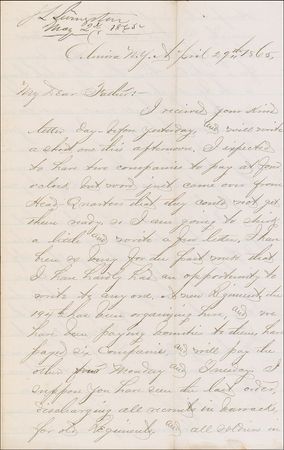 J L Livingston
May 2nd 1865
Elmira N.Y. April 29th 1865,
My Dear Father:-
I received your kind
letter day before yesterday, and will write
a short one this afternoon, I expected
to have two companies to pay at four
oclock but word just came over from
Head Quarters that they could not get
them ready so I am going to
a little and write a few letters, I have
been so busy for the past week that
I have hardly had an opportunity to
write to any one, A new Regiment, the
194th has been organizing here, and we
have been paying bounties to them, have
paid six Companies, and will pay the
other four Monday and Tuesday. I
suppose you have seen the last order,
discharging all recruits in barracks,
for old Regiments, and all soldiers in